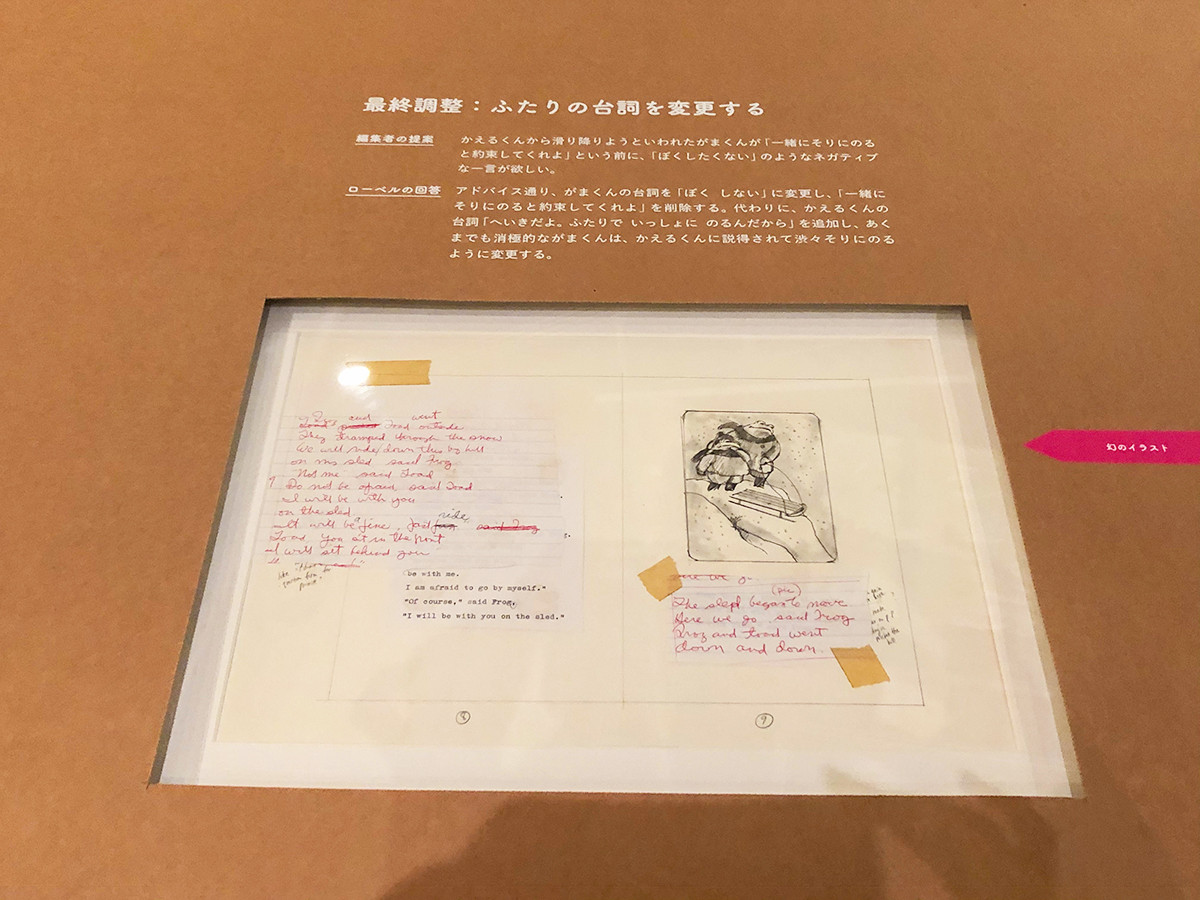 最終調整：ふたりの台詞を変更する
編集者の提案
かえるくんから滑り降りようといわれたがまくんが「一緒にそりにのる
と約束してくれよ」という前に、「ぼくしたくない」のようなネガティブ
な一言が欲しい。
ローベルの回答
アドバイス通り、がまくんの台詞を「ぼく しない」に変更し、「一緒に
そりにのると約束してくれよ」を削除する。代わりに、かえるくんの
台詞「へいきだよ。ふたりで いっしょに のるんだから」を追加し、あく
までも消極的ながまくんは、かえるくんに説得されて渋々そりにのる
ように変更する。
幻のイラスト
and went
Toad outside
They tramped through the snow
We will ride down this big hill
on my sled said Frog
Not me said Toad
Do not be afraid said Toad
I will be with you
on the sled
ride
It will be fine, said Frog
Toad, you sit in the front
I will sit behind you
be with me.
I am afraid to go by myself."
"Of course," said Frog.
"I will be with you on the sled."
8
here we go
(pic)
The sled began to move
Here we go said Frog
Frog and Toad went
down and down.
9